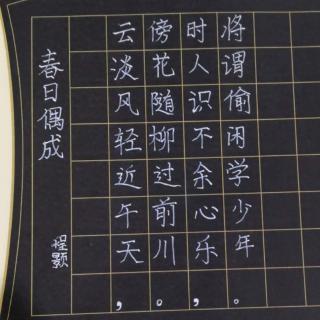 春日偶成
程颢
云淡风轻近午天，
傍花随柳过前川。
时人不识余心乐，
将谓偷闲学少年。